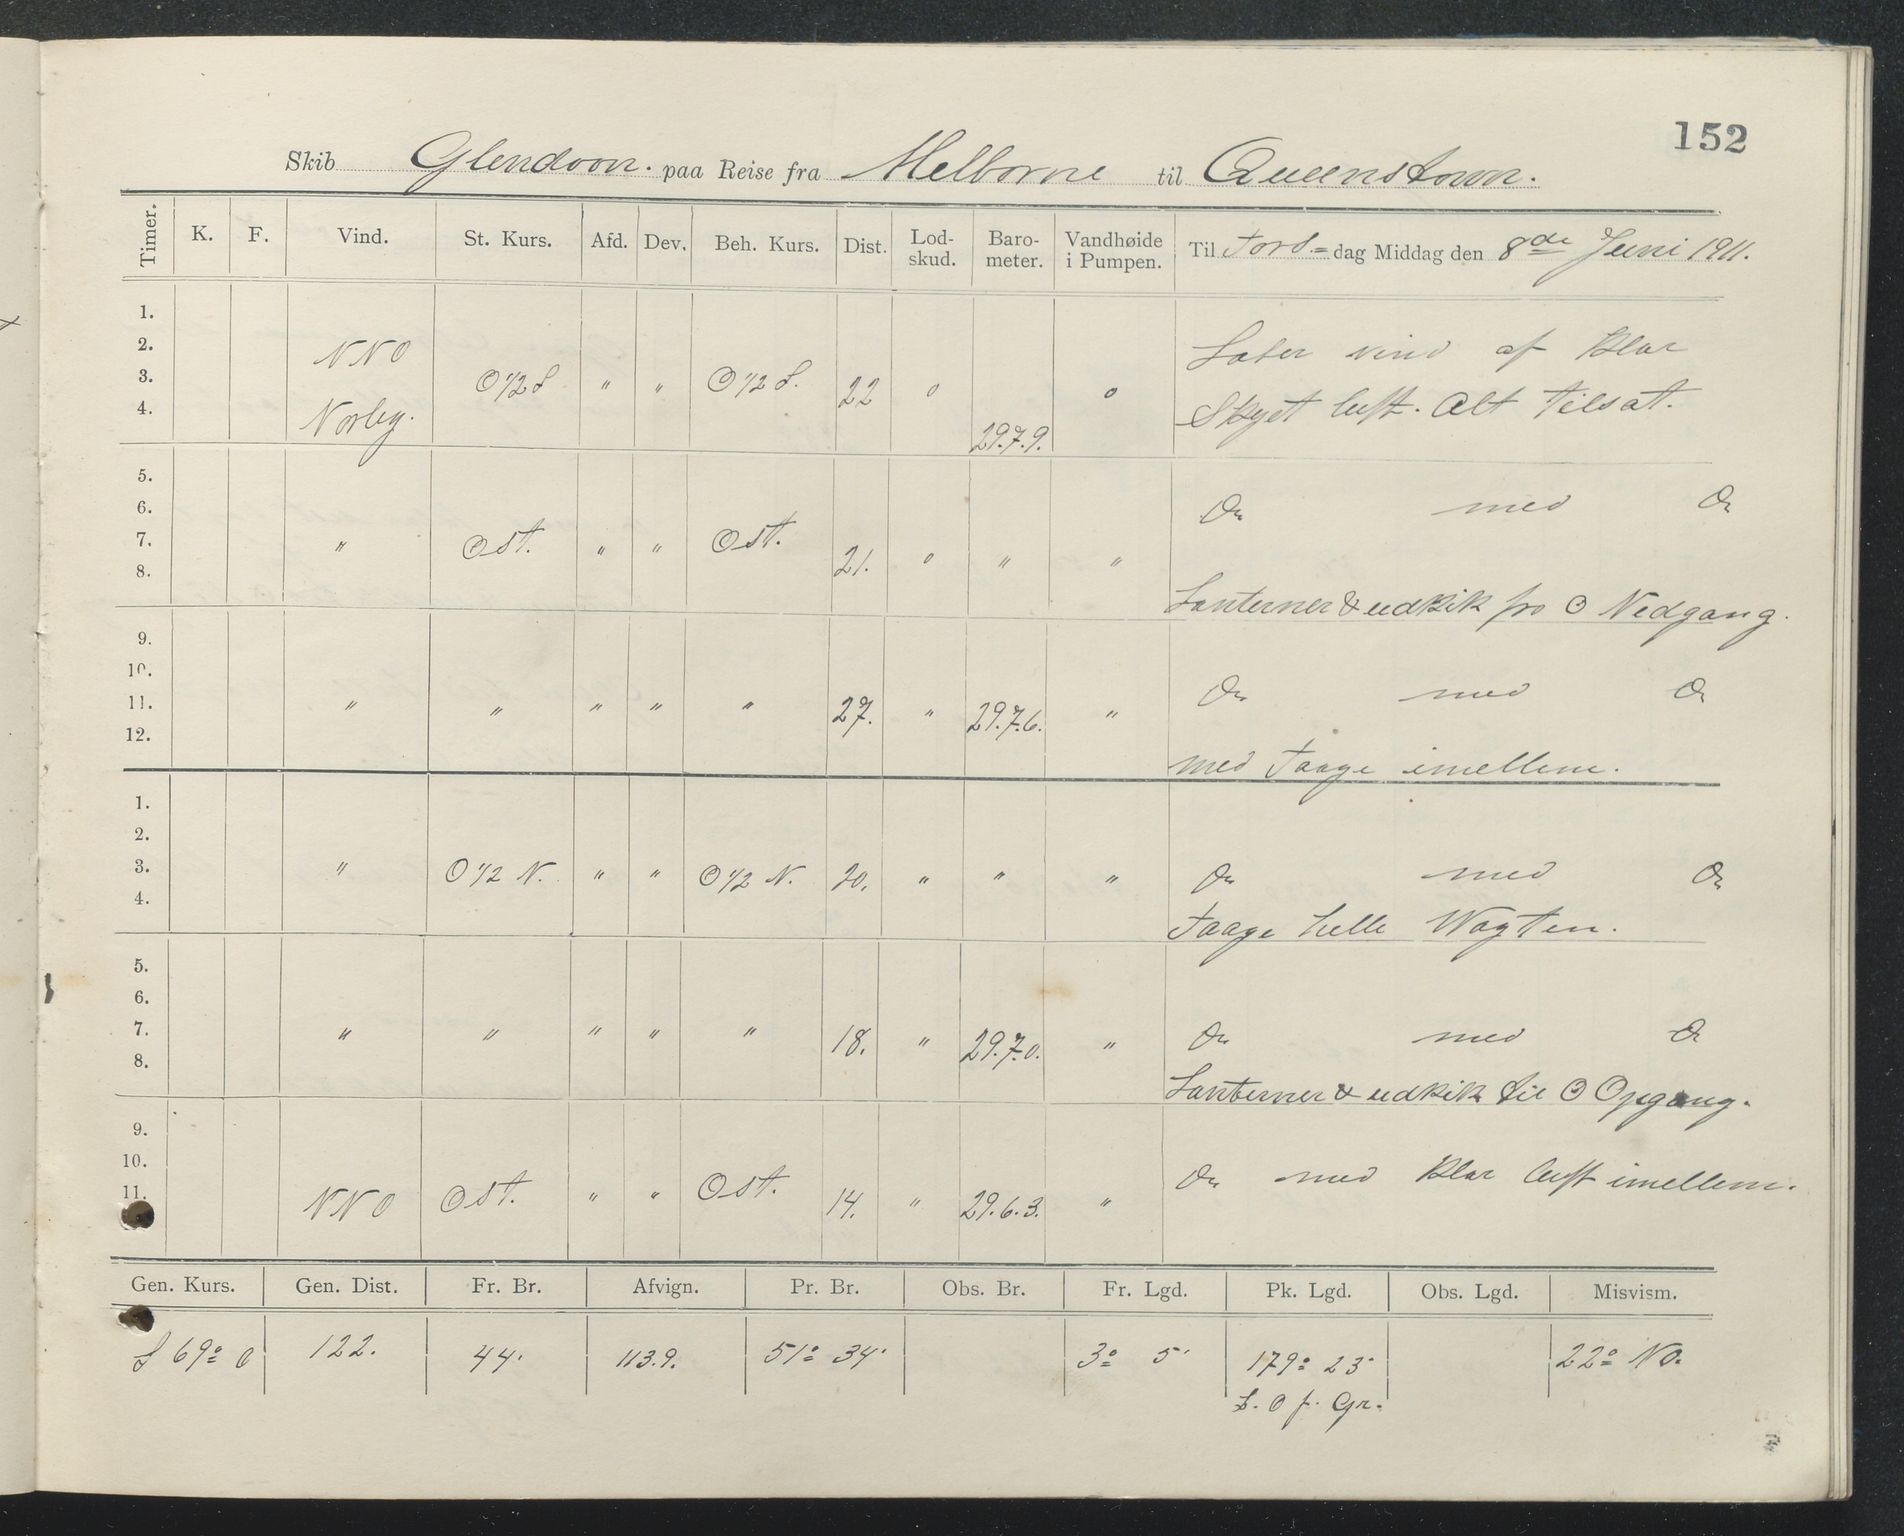 152
Skib Glendoon. paa Reise fra Melborne til Queenstown.
Timer. K. F. Vind. St. Kurs. Afd. Dev. Beh. Kurs. Dist. Lod-skud. Baro-meter. Vandhøide i Pumpen. Til Tors= dag Middag den 8de Juni 1911.
1.
2. NNO Laber vind af klar
3. O 1/2 S " " O 1/2 S. 22 0 0
4. Norlig. 29.7.9. Skyet luft. Alt tilsat.
5.
6. Do med Do
7. " Ost. " " Ost. 21. 0 " "
8.
Lanterner & udkik fra ⊙ Nedgang.
9.
10. Do med Do
11. " " " " " 27. " 29.7.6. "
12.
med Taage imellem.
1.
2.
3. " O 1/2 N. " " O 1/2 N. 20. " " " Do med Do
4.
Taage helle Wagten.
5.
6.
7. " " " " " 18. " 29.7.0. " Do med Do
8.
Lanterner & udkik til ⊙ Opgang.
9.
10. Do med klar luft imellem.
11. NNO Ost. " " Ost. 14. " 29.6.3. "
Gen. Kurs. Gen. Dist. Fr. Br. Afvign. Pr. Br. Obs. Br. Fr. Lgd. Pk. Lgd. Obs. Lgd. Misvism.
S 69° O 122. 44' 113.9. 51° 34' 3° 5' 179° 23' 22° NO.
L. O f. Gr.